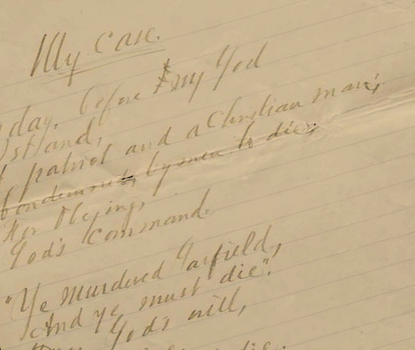 My Case.
day, before my God
I stand,
patriot and a Christian man;
Condemned, by men to die,
for obeying,
God's command.
"Ye murdered Garfield,
And ye must die".
God's will,